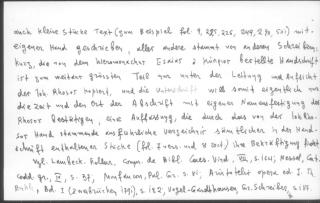 auch kleine Stücke Text (zum Beispiel fol. 9, 225, 226, 249, 290, 501) mit
eigener Hand geschrieben, alles andere stammt von anderen Schreibern,
kurz, die von dem Hieromonachos Esaias 2 hinzu bestellte Handschrift
ist zum weitaus grössten Teil nur unter der Leitung und Aufsicht
der Joh. Rhosos kopiert, und die Unterschrift will somit eigentlich nur
die Zeit und den Ort der Abschrift mit eigener Namensfertigung des
Rhosos bestätigen, eine Auffassung, die durch das von der Joh. Rho-
sos Hand stammende ausführliche Verzeichnis sämtlicher in der Hand-
schrift enthaltenen Stücke (fol. 2 vers. und 3 rect.) ihre Bekräftigung findet
Vgl. Lambeck-Kollar, Comm. de Bibl. Caes. Vind., VII, s. Nessel, Cat.
codd. gr., IV, s. 37, Montfaucon, Pal. Gr. s. 81, Aristotelis opera ed. J. Th.
Buhle, Bd. I (Zweibrücken 1791), s. 182, Vogel-Gardthausen, Gr. Schreiber, s. 187.